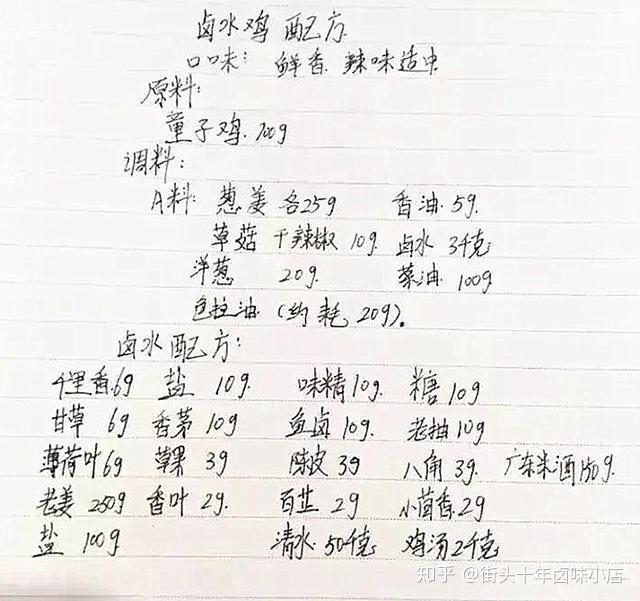 卤水鸡配方
口味: 鲜香 辣味适中
原料:
童子鸡.700g
调料:
A料: 葱姜各25g 香油.5g.
草菇 干辣椒 10g. 卤水 3千克
洋葱 20g. 菜油.100g
色拉油.(约耗20g)。
卤水配方:
千里香.6g 盐 10g. 味精10g. 糖10g
甘草 6g 香茅10g 鱼卤10g. 老抽10g
薄荷叶6g 草果 3g 陈皮3g 八角3g. 广东米酒150g.
老姜250g 香叶2g. 百芷 2g 小茴香.2g
盐 100g 清水50千克 鸡汤2千克
知乎 @街头十年卤味小店